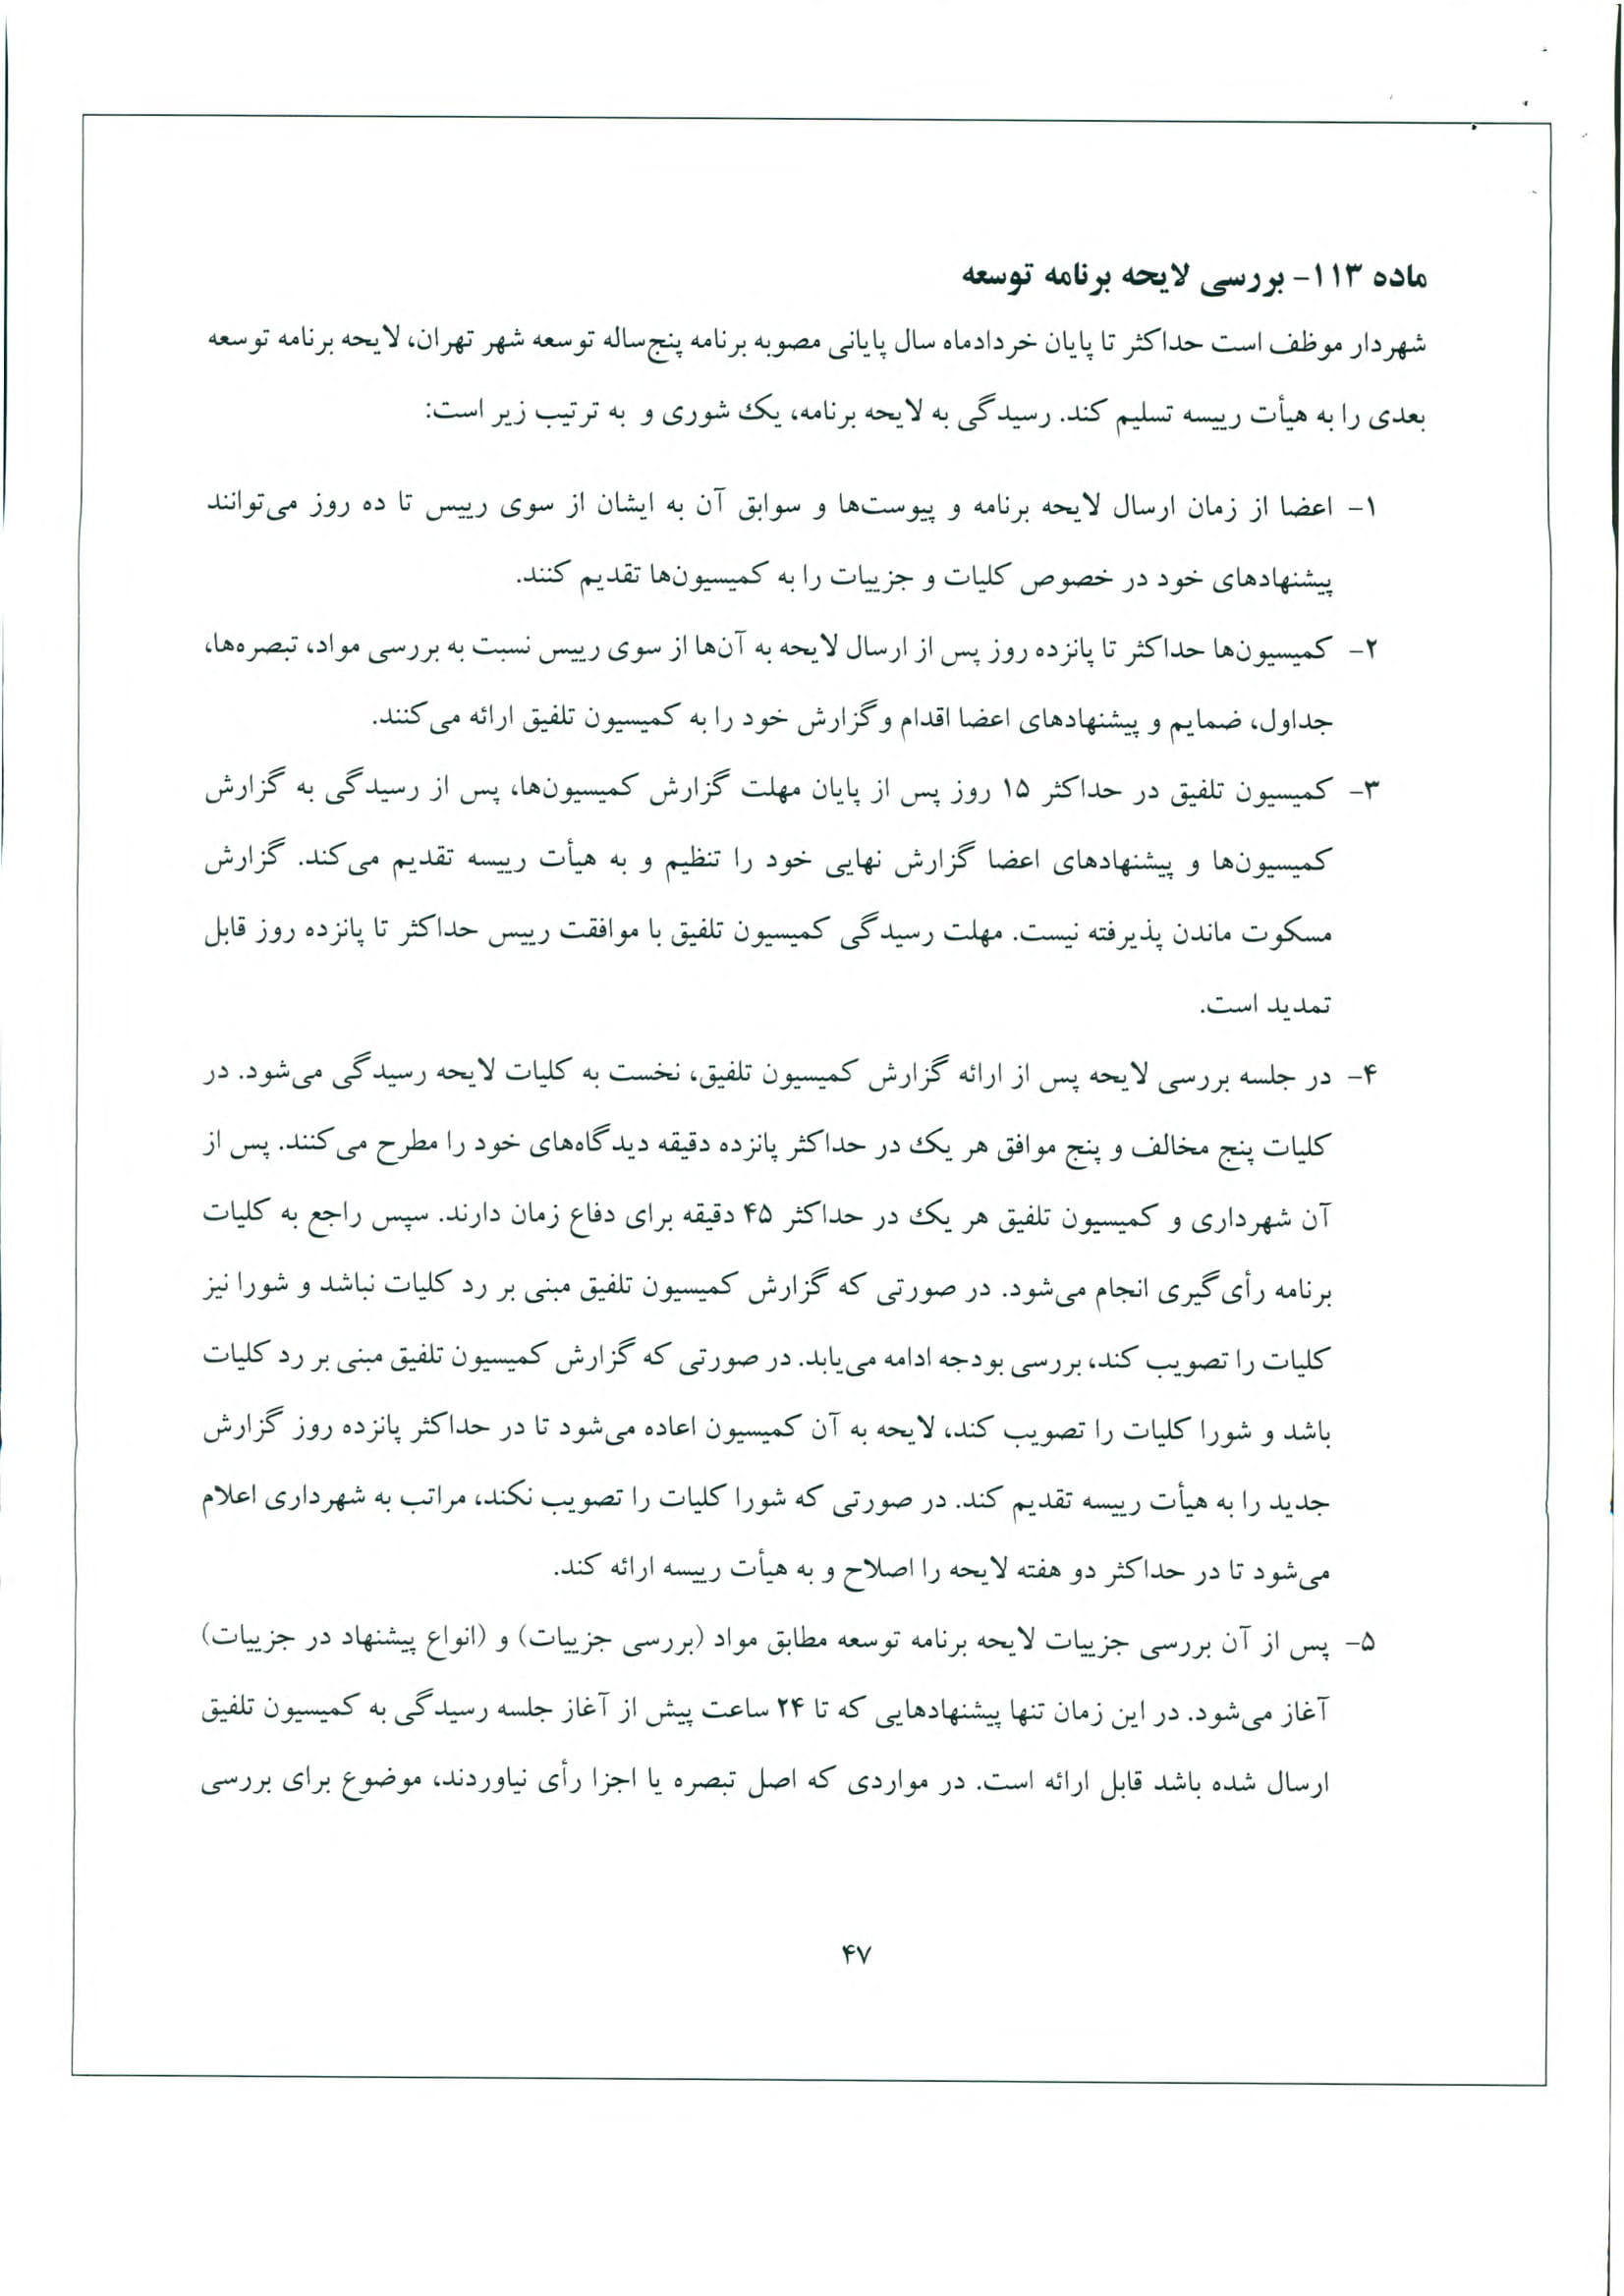 ماده ۱۱۳- بررسی لایحه برنامه توسعه
شهردار موظف است حداکثر تا پایان خردادماه سال پایانی مصوبه برنامه پنج‌ساله توسعه شهر تهران، لایحه برنامه توسعه
بعدی را به هیأت رییسه تسلیم کند. رسیدگی به لایحه برنامه، یک شوری و به ترتیب زیر است:
۱- اعضا از زمان ارسال لایحه برنامه و پیوست‌ها و سوابق آن به ایشان از سوی رییس تا ده روز می‌توانند
پیشنهادهای خود در خصوص کلیات و جزییات را به کمیسیون‌ها تقدیم کنند.
۲- کمیسیون‌ها حداکثر تا پانزده روز پس از ارسال لایحه به آن‌ها از سوی رییس نسبت به بررسی مواد، تبصره‌ها،
جداول، ضمایم و پیشنهادهای اعضا اقدام و گزارش خود را به کمیسیون تلفیق ارائه می‌کنند.
۳- کمیسیون تلفیق در حداکثر ۱۵ روز پس از پایان مهلت گزارش کمیسیون‌ها، پس از رسیدگی به گزارش
کمیسیون‌ها و پیشنهادهای اعضا گزارش نهایی خود را تنظیم و به هیأت رییسه تقدیم می‌کند. گزارش
مسکوت ماندن پذیرفته نیست. مهلت رسیدگی کمیسیون تلفیق با موافقت رییس حداکثر تا پانزده روز قابل
تمدید است.
۴- در جلسه بررسی لایحه پس از ارائه گزارش کمیسیون تلفیق، نخست به کلیات لایحه رسیدگی می‌شود. در
کلیات پنج مخالف و پنج موافق هر یک در حداکثر پانزده دقیقه دیدگاه‌های خود را مطرح می‌کنند. پس از
آن شهرداری و کمیسیون تلفیق هر یک در حداکثر ۴۵ دقیقه برای دفاع زمان دارند. سپس راجع به کلیات
برنامه رأی‌گیری انجام می‌شود. در صورتی که گزارش کمیسیون تلفیق مبنی بر رد کلیات نباشد و شورا نیز
کلیات را تصویب کند، بررسی بودجه ادامه می‌یابد. در صورتی که گزارش کمیسیون تلفیق مبنی بر رد کلیات
باشد و شورا کلیات را تصویب کند، لایحه به آن کمیسیون اعاده می‌شود تا در حداکثر پانزده روز گزارش
جدید را به هیأت رییسه تقدیم کند. در صورتی که شورا کلیات را تصویب نکند، مراتب به شهرداری اعلام
می‌شود تا در حداکثر دو هفته لایحه را اصلاح و به هیأت رییسه ارائه کند.
۵- پس از آن بررسی جزییات لایحه برنامه توسعه مطابق مواد (بررسی جزییات) و (انواع پیشنهاد در جزییات)
آغاز می‌شود. در این زمان تنها پیشنهادهایی که تا ۲۴ ساعت پیش از آغاز جلسه رسیدگی به کمیسیون تلفیق
ارسال شده باشد قابل ارائه است. در مواردی که اصل تبصره یا اجزا رأی نیاوردند، موضوع برای بررسی
۴۷